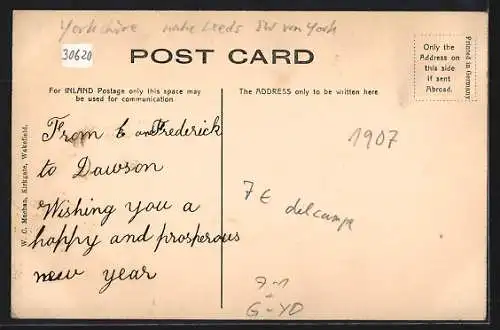 Yorkshire nahe Leeds SW von York
30620
POST CARD
Only the
Address on
this side
if sent
Abroad.
Printed in Germany
For INLAND Postage only this space may
be used for communication
The ADDRESS only to be written here
W. C. Meehan, Kirkgate, Wakefield.
From E and Frederick
to Dawson
Wishing you a
happy and prosperous
new year
1907
7 €
delcampe
7-1
G-YD